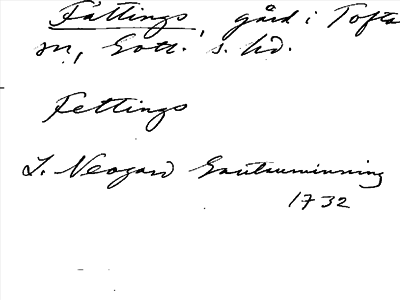 Fättings, gård i Tofta
sn, Gotl. s. hd.
Fettings
L. Neogard Gautauminning
1732